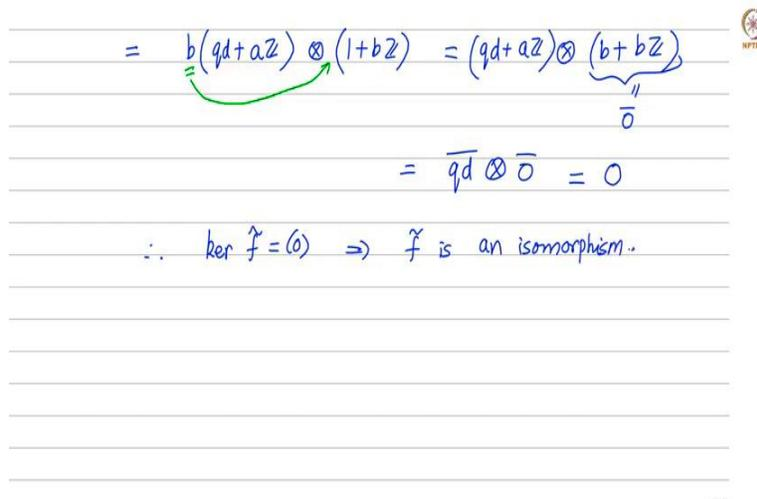 = b(qd+aℤ) ⊗ (1+bℤ) = (qd+aℤ) ⊗ (b+bℤ)
=
"
0̅
= q̅d̅ ⊗ 0̅ = 0
∴ ker f̃ = (0) ⇒ f̃ is an isomorphism.
NPTEL